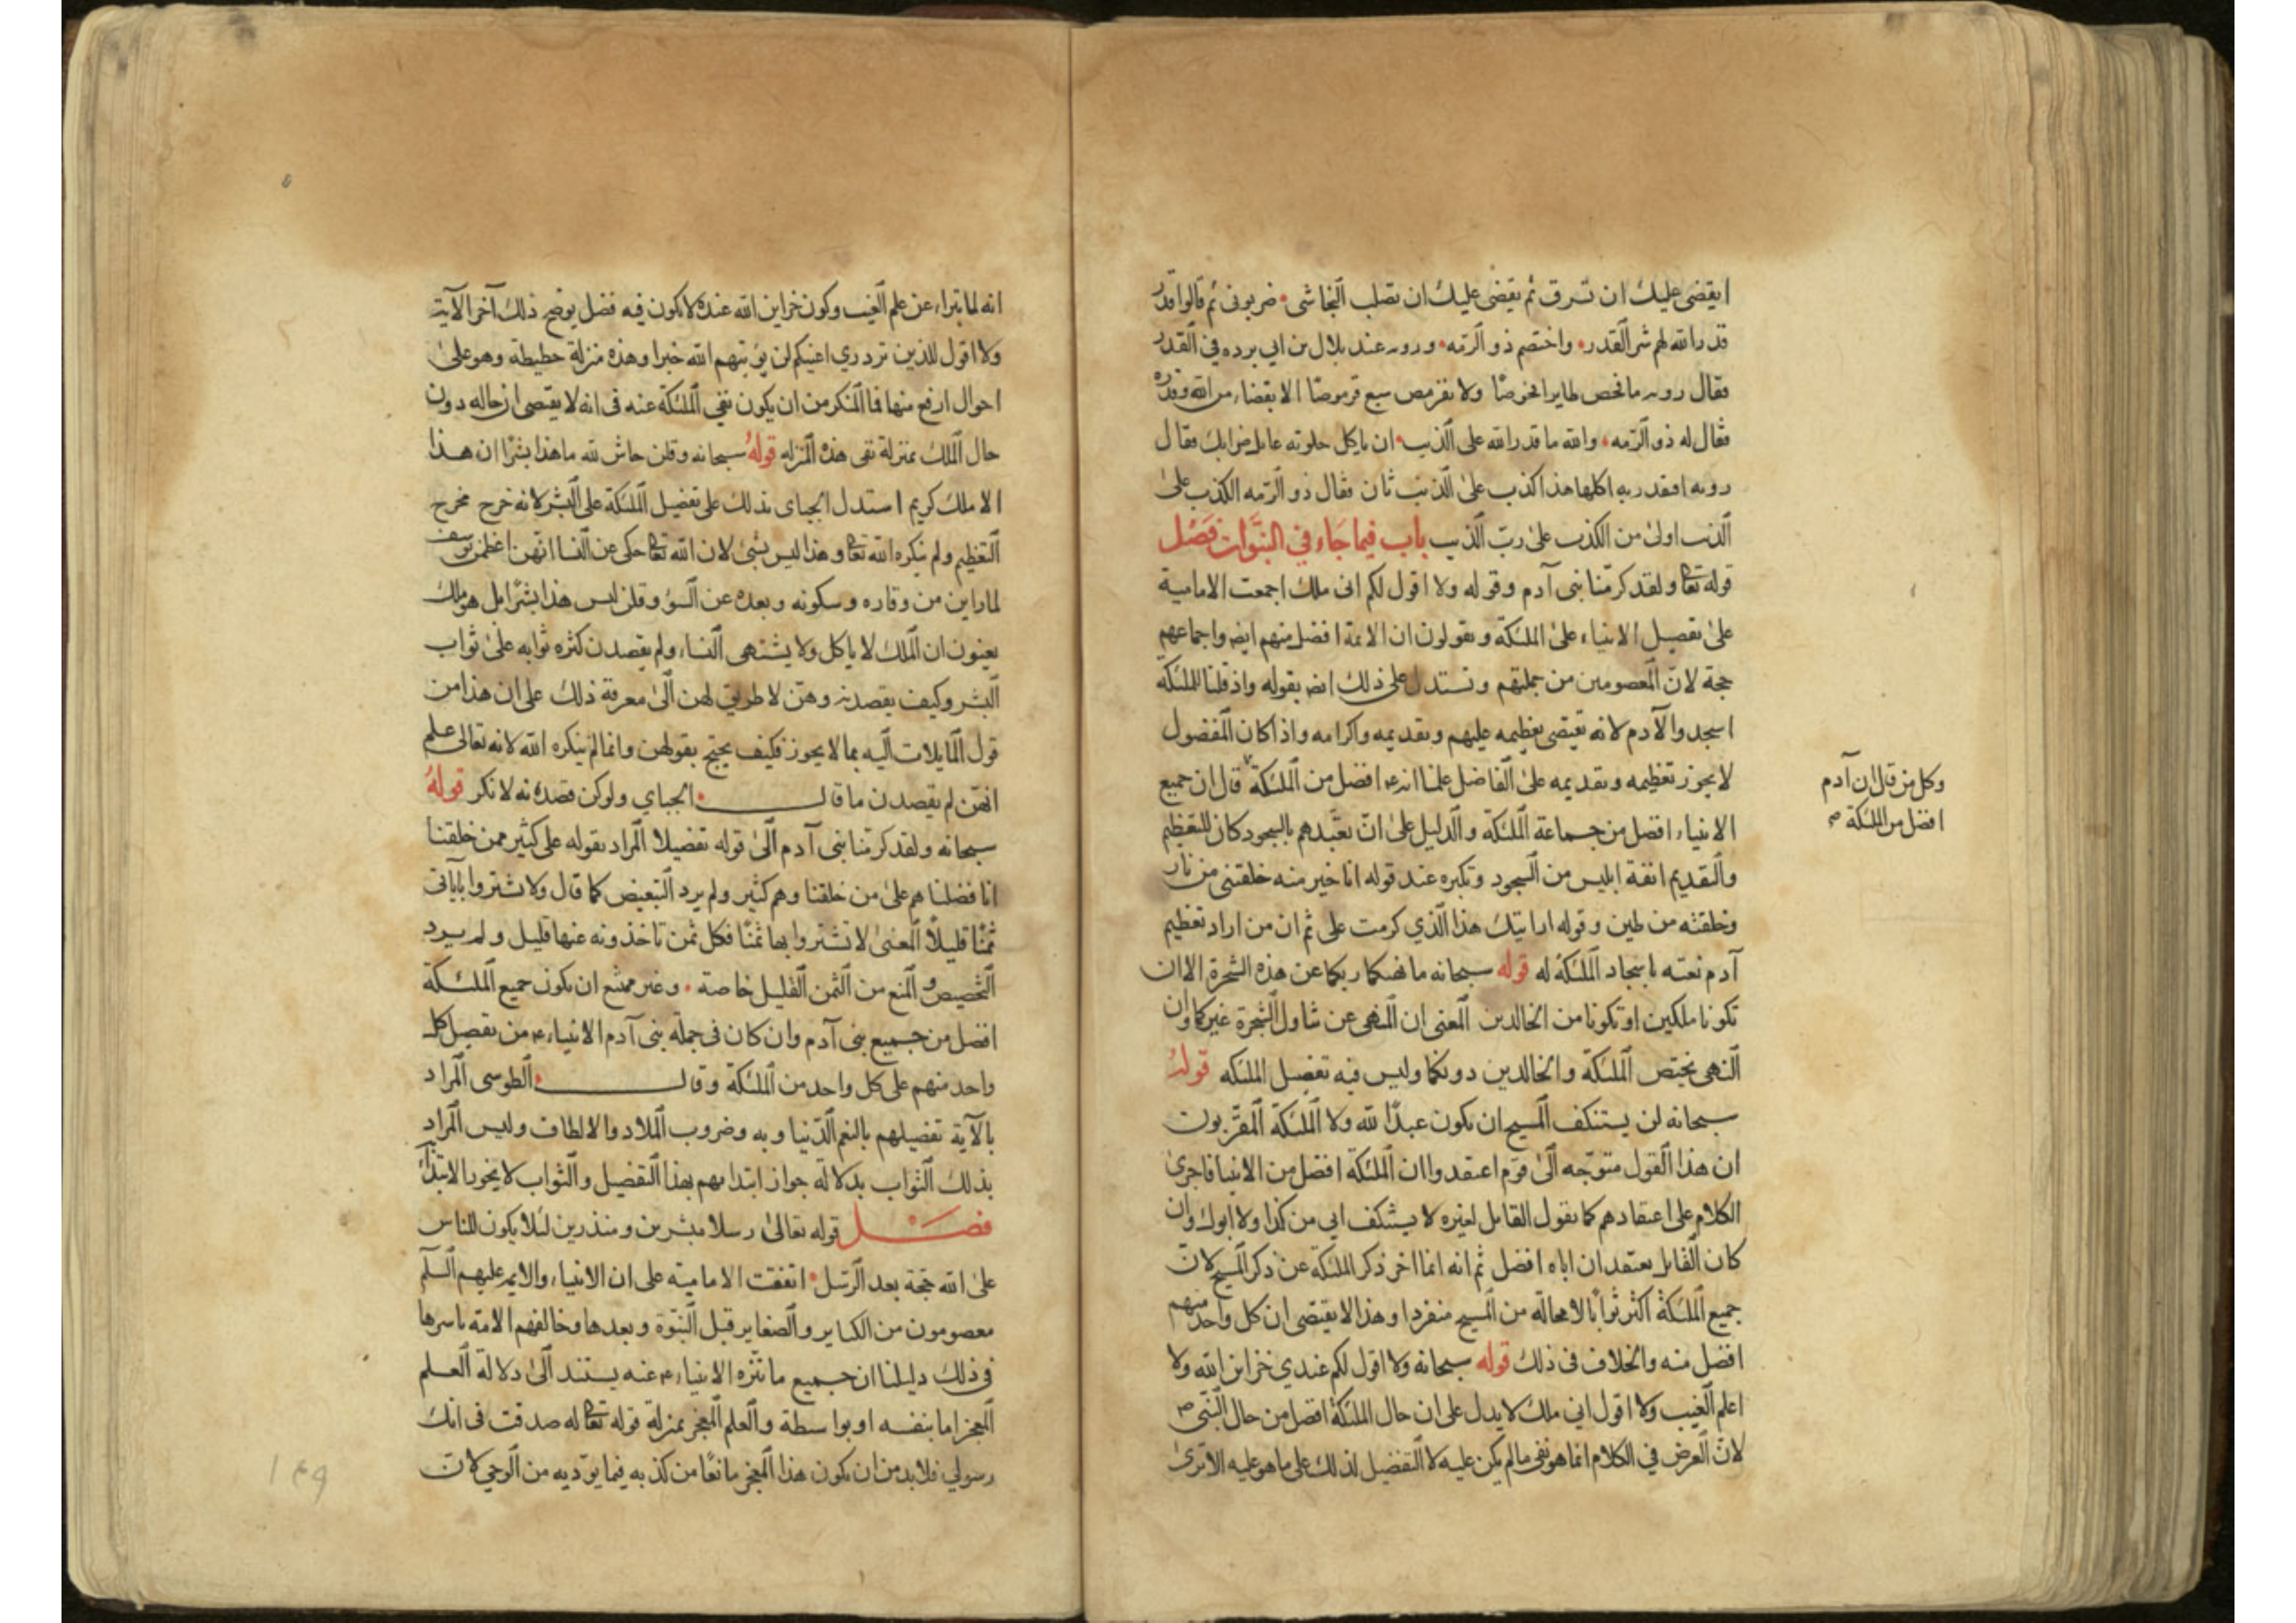 ايقضى عليك ان تسرق ثم يقضى عليك ان تصلب النجاشى ضربونى ثم قالوا قدر
قدر الله لهم شر القدر واختصم ذو الرمه ورويه عند بلال بن ابى برده في القدر
فقال رويه ما فحص طاير افحوصا ولا تقرمص سبع قرموصا الا بقضاء من الله وقدره
فقال له ذو الرمه والله ما قدر الله على الذيب ان ياكل حلوبة عايل ضرايك فقال
رويه افبقدرته اكلها هذا كذب على الذيب ثان فقال ذو الرمه الكذب على
الذيب اولى من الكذب على ربّ الذيب باب فيما جاء في النبوّات فصل
قوله تعا ولقد كرمنا بنى آدم وقوله ولا اقول لكم انى ملك اجمعت الامامية
على تفضيل الانبياء على الملئكة ويقولون ان الائمة افضل منهم ايض واجماعهم
حجة لانّ المعصومين من جملتهم ونستدل على ذلك ايض بقوله واذ قلنا للملئكة
اسجدوا لآدم لانه يقتضى تعظيمه عليهم وتقديمه واكرامه واذا كان المفضول
لا يجوز تعظيمه وتقديمه على الفاضل علمنا انه افضل من الملئكة قال ان جميع
وكل من قال ان آدم
افضل من الملئكة
الانبياء افضل من جماعة الملئكة والدليل على انّ تعبّدهم بالسجود كان للتعظيم
والتقديم انفة ابليس من السجود وتكبره عند قوله انا خير منه خلقتنى من نار
وخلقته من طين وقوله ارايتك هذا الذي كرمت على ثم ان من اراد تعظيم
آدم نعته باسجاد الملئكة له قوله سبحانه ما نهيكما ربكما عن هذه الشجرة الا ان
تكونا ملكين او تكونا من الخالدين المعنى ان المنهى عن تناول الشجرة غيركما وان
النهى يختص الملئكة والخالدين دونكما وليس فيه تفضيل الملئكه قوله
سبحانه لن يستنكف المسيح ان يكون عبدًا لله ولا الملئكة المقرّبون
ان هذا القول متوجّه الى قوم اعتقدوا ان الملئكة افضل من الانبيا فاجرى
الكلام على اعتقادهم كما يقول القايل لغيره لا يستنكف ابى من كذا ولا ابوك وان
كان القايل يعتقد ان اباه افضل ثم انه انما اخر ذكر الملئكة عن ذكر المسيح لانّ
جميع الملئكة اكثر ثوابًا لا محالة من المسيح منفردا وهذا لا يقتضى ان كل واحد منهم
افضل منه والخلاف فى ذلك قوله سبحانه ولا اقول لكم عندي خزاين الله ولا
اعلم الغيب ولا اقول انى ملك لا يدل على ان حال الملئكة افضل من حال النبي
لانّ الغرض في الكلام انما هو نفى ما لم يكن عليه لا التفضيل لذلك على ما هو عليه الا ترى
انه لما تبراء عن علم الغيب وكون خزاين الله عنده لا يكون فيه فضل يوضح ذلك آخر الآية
ولا اقول للذين تزدري اعينكم لن يؤتيهم الله خيرا وهذه منزلة حطيطة وهو على
احوال ارفع منها فما المنكر من ان يكون نفى الملئكة عنه فى انه لا يقتضى ان حاله دون
حال الملك بمنزلة نفى هذه المنزله قوله سبحانه وقلن حاش لله ما هذا بشرًا ان هذا
الا ملك كريم استدل الجباى بذلك على تفضيل الملئكة على البشر لانه خرج مخرج
التعظيم ولم ينكره الله تعا وهذا ليس بشئ لان الله تعا حكى عن النسا انهن اعظمن يوسف
لما راين من وقاره وسكونه وبعده عن السوء وقلن ليس هذا بشرًا بل هو ملك
يعنون ان الملك لا ياكل ولا يشتهى النساء ولم يقصدن كثره ثوابه على ثواب
البشر وكيف يقصدنه وهنّ لا طريق لهن الى معرفة ذلك على ان هذا من
قول المايلات اليه بما لا يجوز فكيف يحتج بقولهن وانما لم ينكره الله لانه تعالى علم
انهنّ لم يقصدن ما قال الجباي ولو كن قصدنه لانكر قوله
سبحانه ولقد كرّمنا بنى آدم الى قوله تفضيلا المراد بقوله على كثير ممن خلقنا
انا فضلناهم على من خلقنا وهم كثير ولم يرد التبعيض كما قال ولا تشتروا بآياتى
ثمنًا قليلًا المعنى لا تشتروا بها ثمنًا فكل ثمن تاخذونه عنها قليل ولم يرد
التخصيص والمنع من الثمن القليل خاصة وغير ممتنع ان يكون جميع الملئكة
افضل من جميع بنى آدم وان كان فى جملة بنى آدم الانبياء من تفضيل كل
واحد منهم على كل واحد من الملئكة وقال الطوسى المراد
بالآية تفضيلهم بالنعم الدنياويه وضروب الملاد والالطاف وليس المراد
بذلك الثواب بدلالة جواز ابتدايهم بهذا التفضيل والثواب لا يجوز الابتداء
فصل قوله تعالى رسلا مبشرين ومنذرين لئلا يكون للناس
على الله حجّة بعد الرسل اتفقت الامامية على ان الانبياء والايمه عليهم السلم
معصومون من الكباير والصغاير قبل النبوّة وبعدها وخالفهم الامه باسرها
فى ذلك دليلنا ان جميع ما ننزه الانبياء عنه يستند الى دلالة العلم
المعجز اما بنفسه او بواسطة والعلم المعجز بمنزلة قوله تعا له صدقت فى انك
رسولي فلا بد من ان يكون هذا المعجز مانعًا من كذبه فيما يؤديه من الوحي لانّ
١٤٩